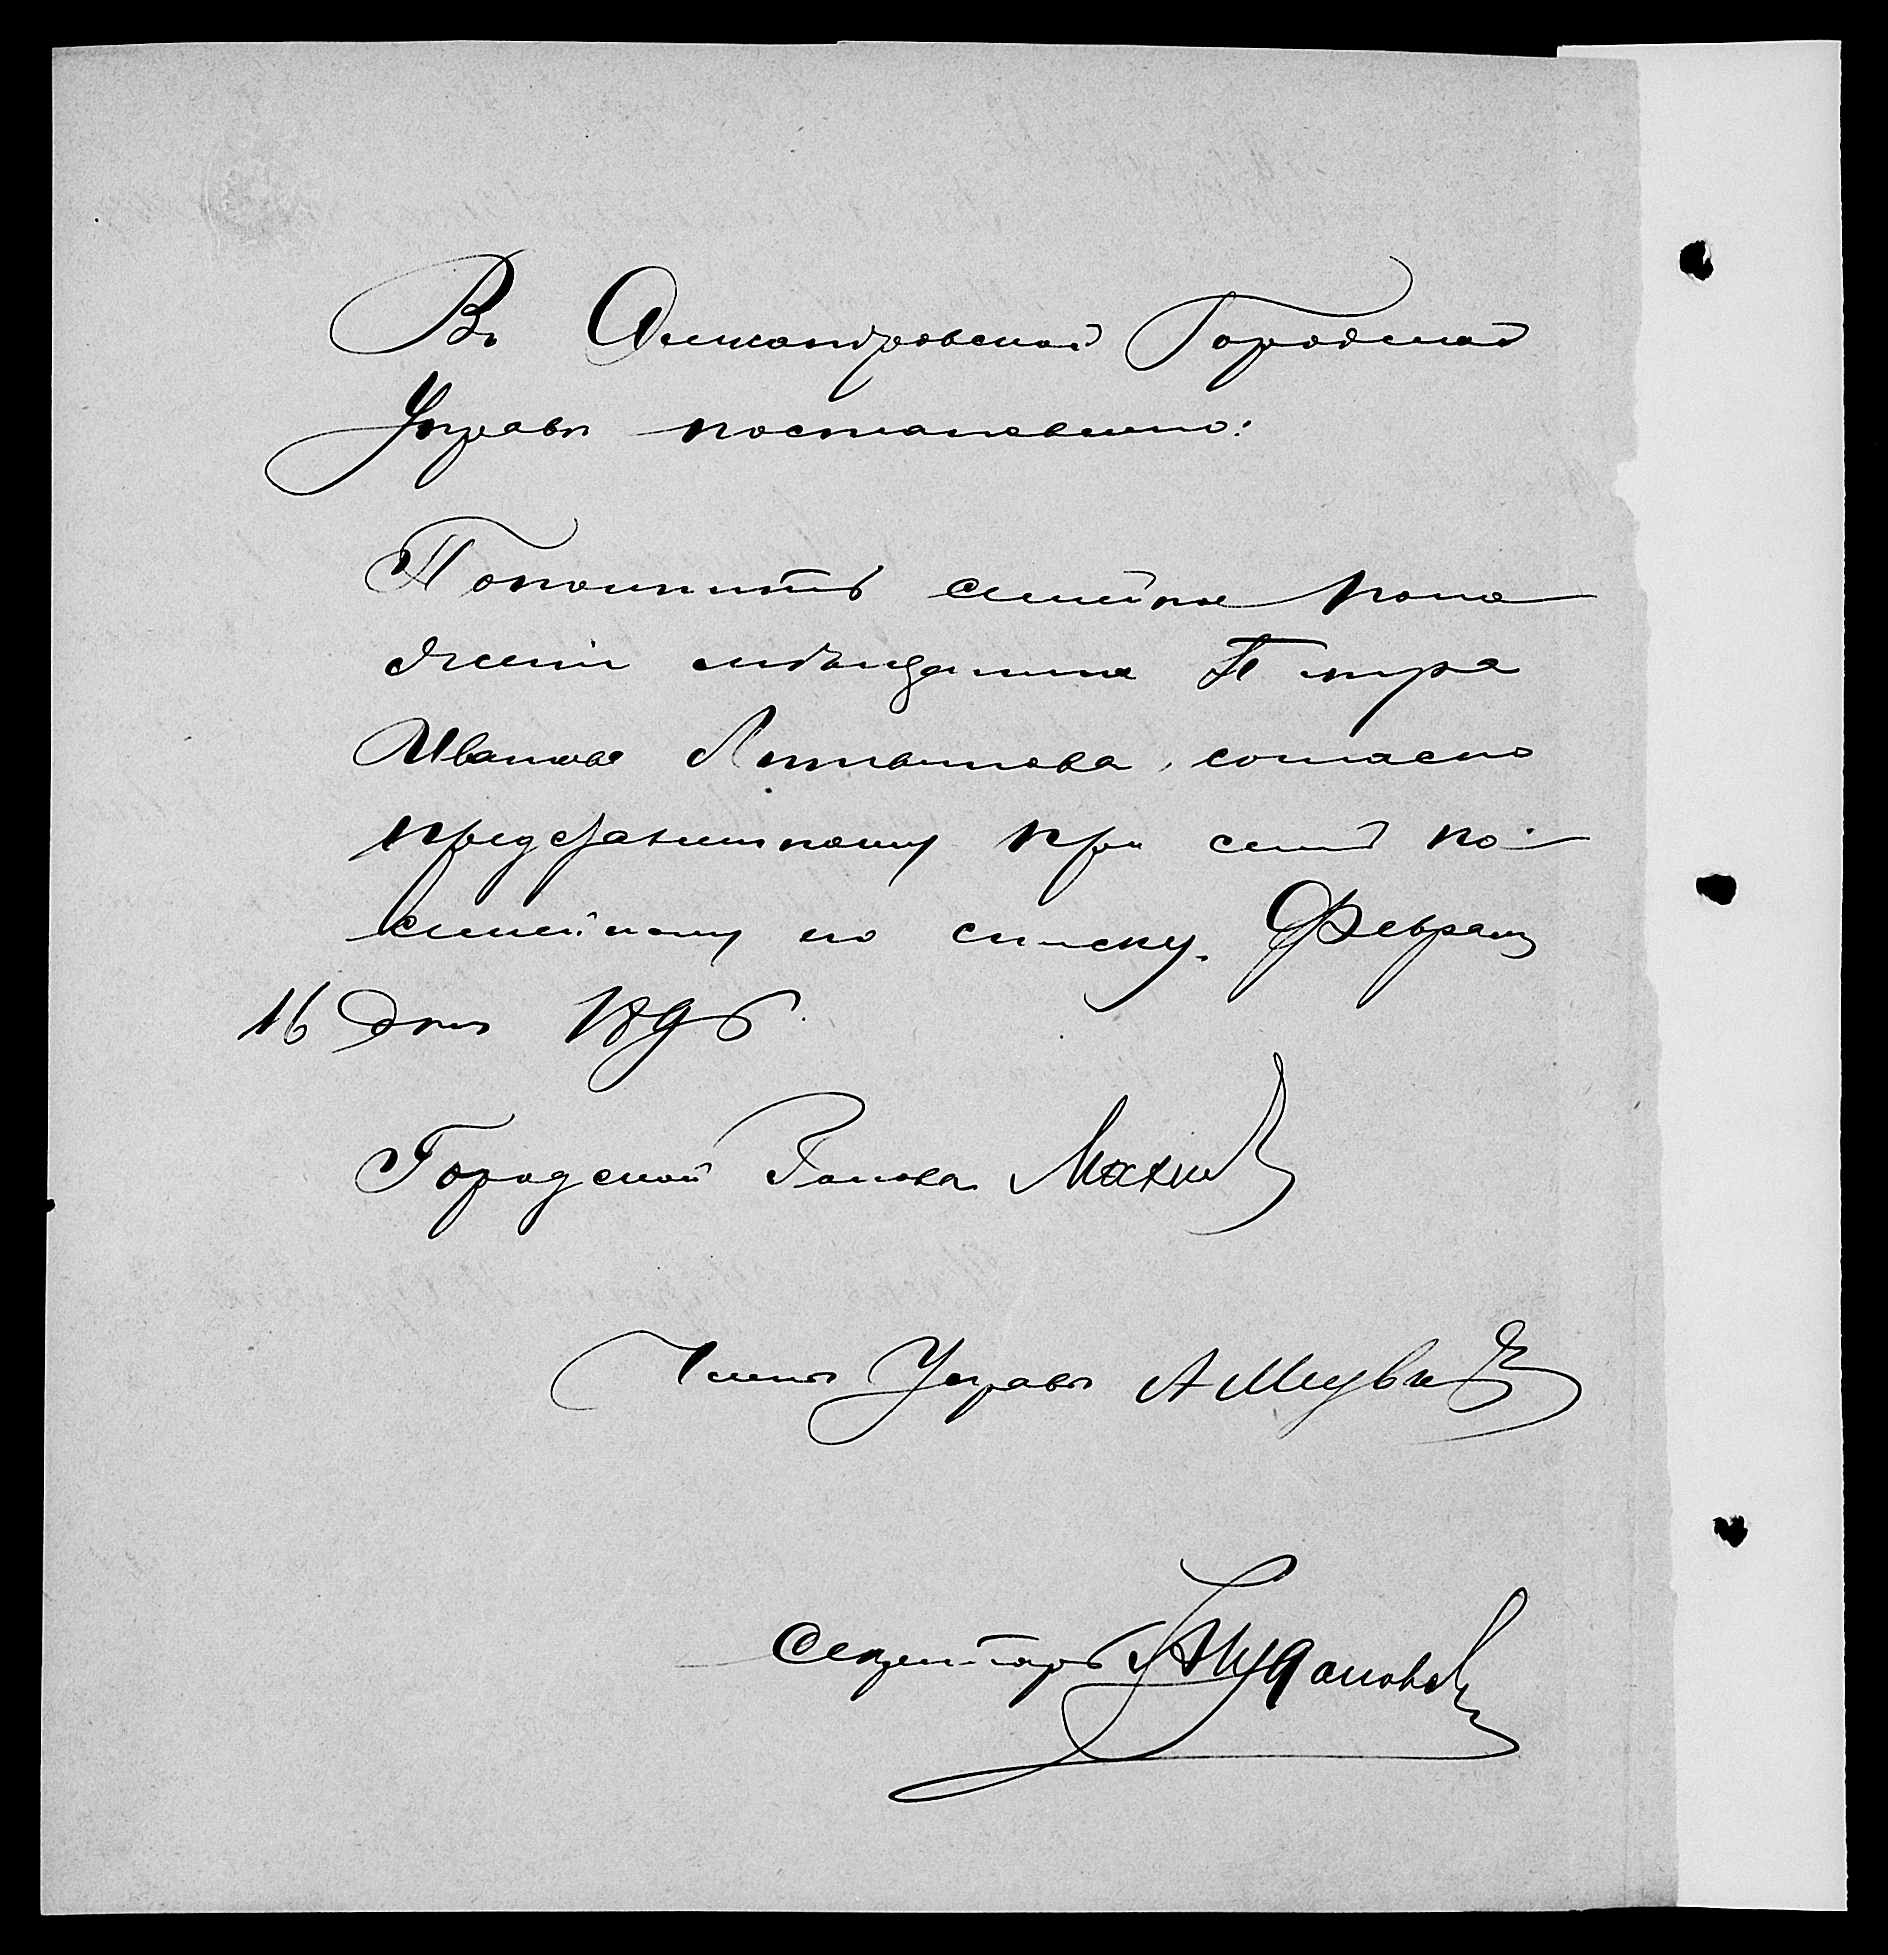 Въ Александровской Городской
Управѣ постановлено:
Пополнить семейное поло
женіе мѣщанина Петра
Иванова Литвинова, согласно
представленному при семъ по-
семейному его списку. Февраля
16 дня 1896
Городской Голова
Членъ Управы А
Секретарь